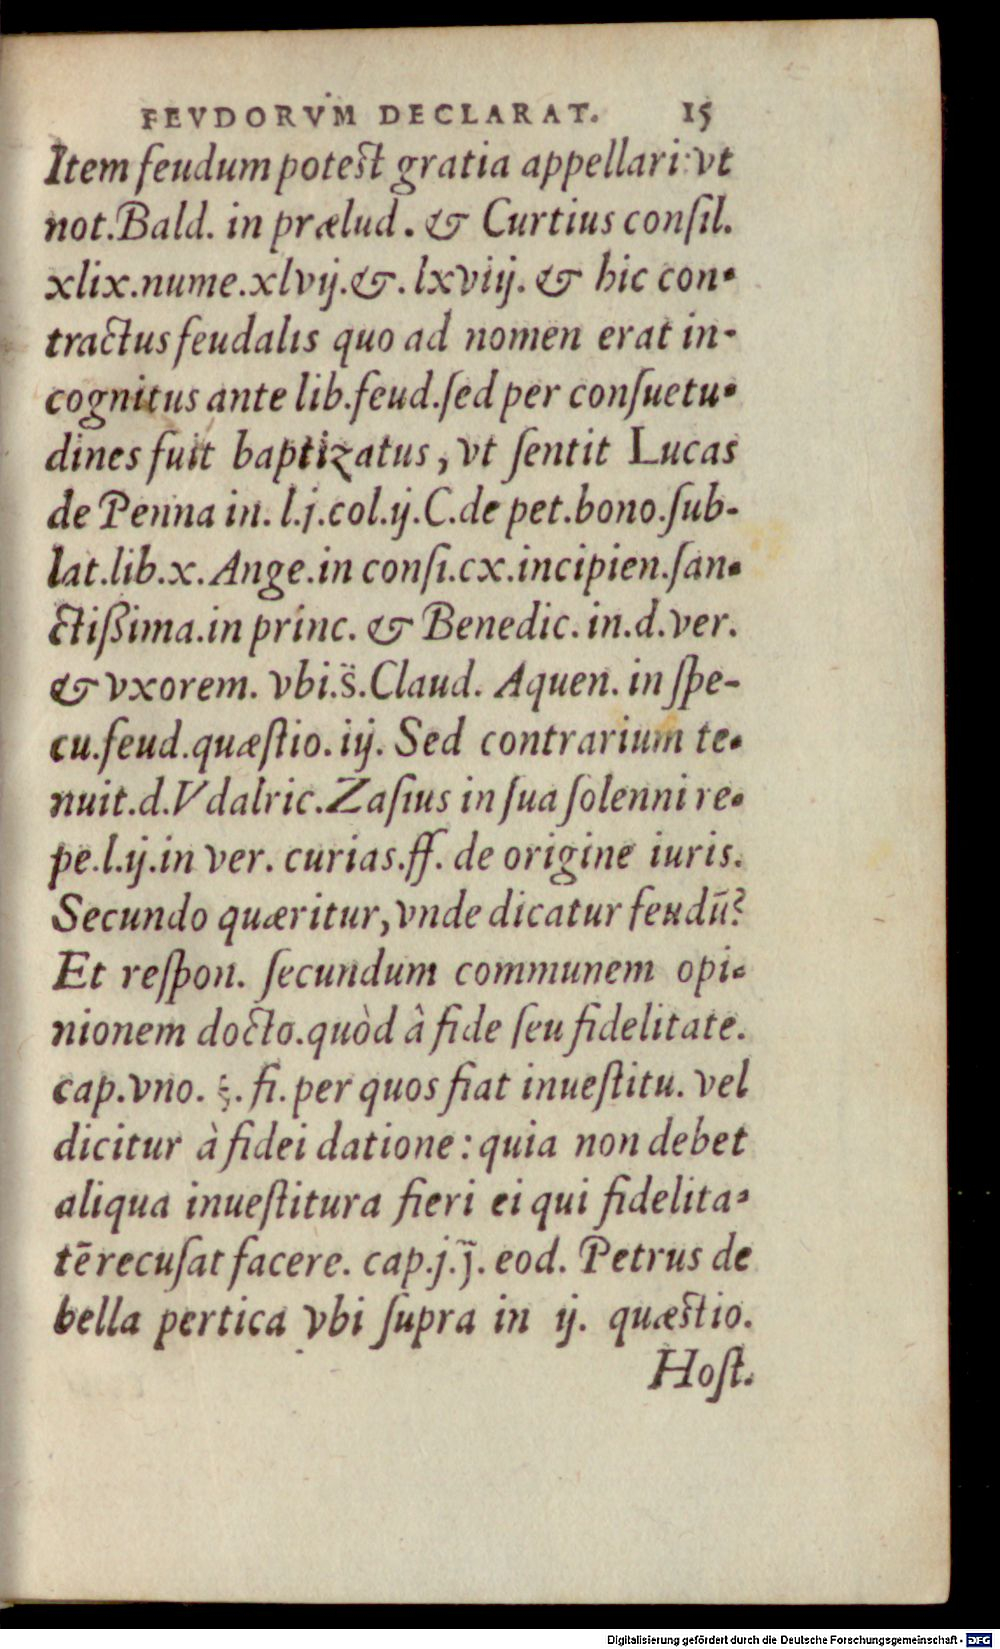 FEVDORVM DECLARAT. 15
Item feudum potest gratia appellari: vt
not. Bald. in prælud. & Curtius consil.
xlix. nume. xlvij. &. lxviij. & hic con-
tractus feudalis quo ad nomen erat in-
cognitus ante lib. feud. sed per consuetu-
dines fuit baptizatus, vt sentit Lucas
de Penna in. l. j. col. ij. C. de pet. bono. sub-
lat. lib. x. Ange. in consi. cx. incipien. san-
ctißima. in princ. & Benedic. in. d. ver.
& vxorem. vbi. s̈. Claud. Aquen. in spe-
cu. feud. quæstio. iij. Sed contrarium te-
nuit. d. Vdalric. Zasius in sua solenni re-
pe. l. ij. in ver. curias. ff. de origine iuris.
Secundo quæritur, vnde dicatur feudū?
Et respon. secundum communem opi-
nionem docto. quòd â fide seu fidelitate.
cap. vno. §. fi. per quos fiat inuestitu. vel
dicitur à fidei datione: quia non debet
aliqua inuestitura fieri ei qui fidelita-
tē recusat facere. cap. j. j̃. eod. Petrus de
bella pertica vbi supra in ij. quæstio.
Host.
Digitalisierung gefördert durch die Deutsche Forschungsgemeinschaft - DFG